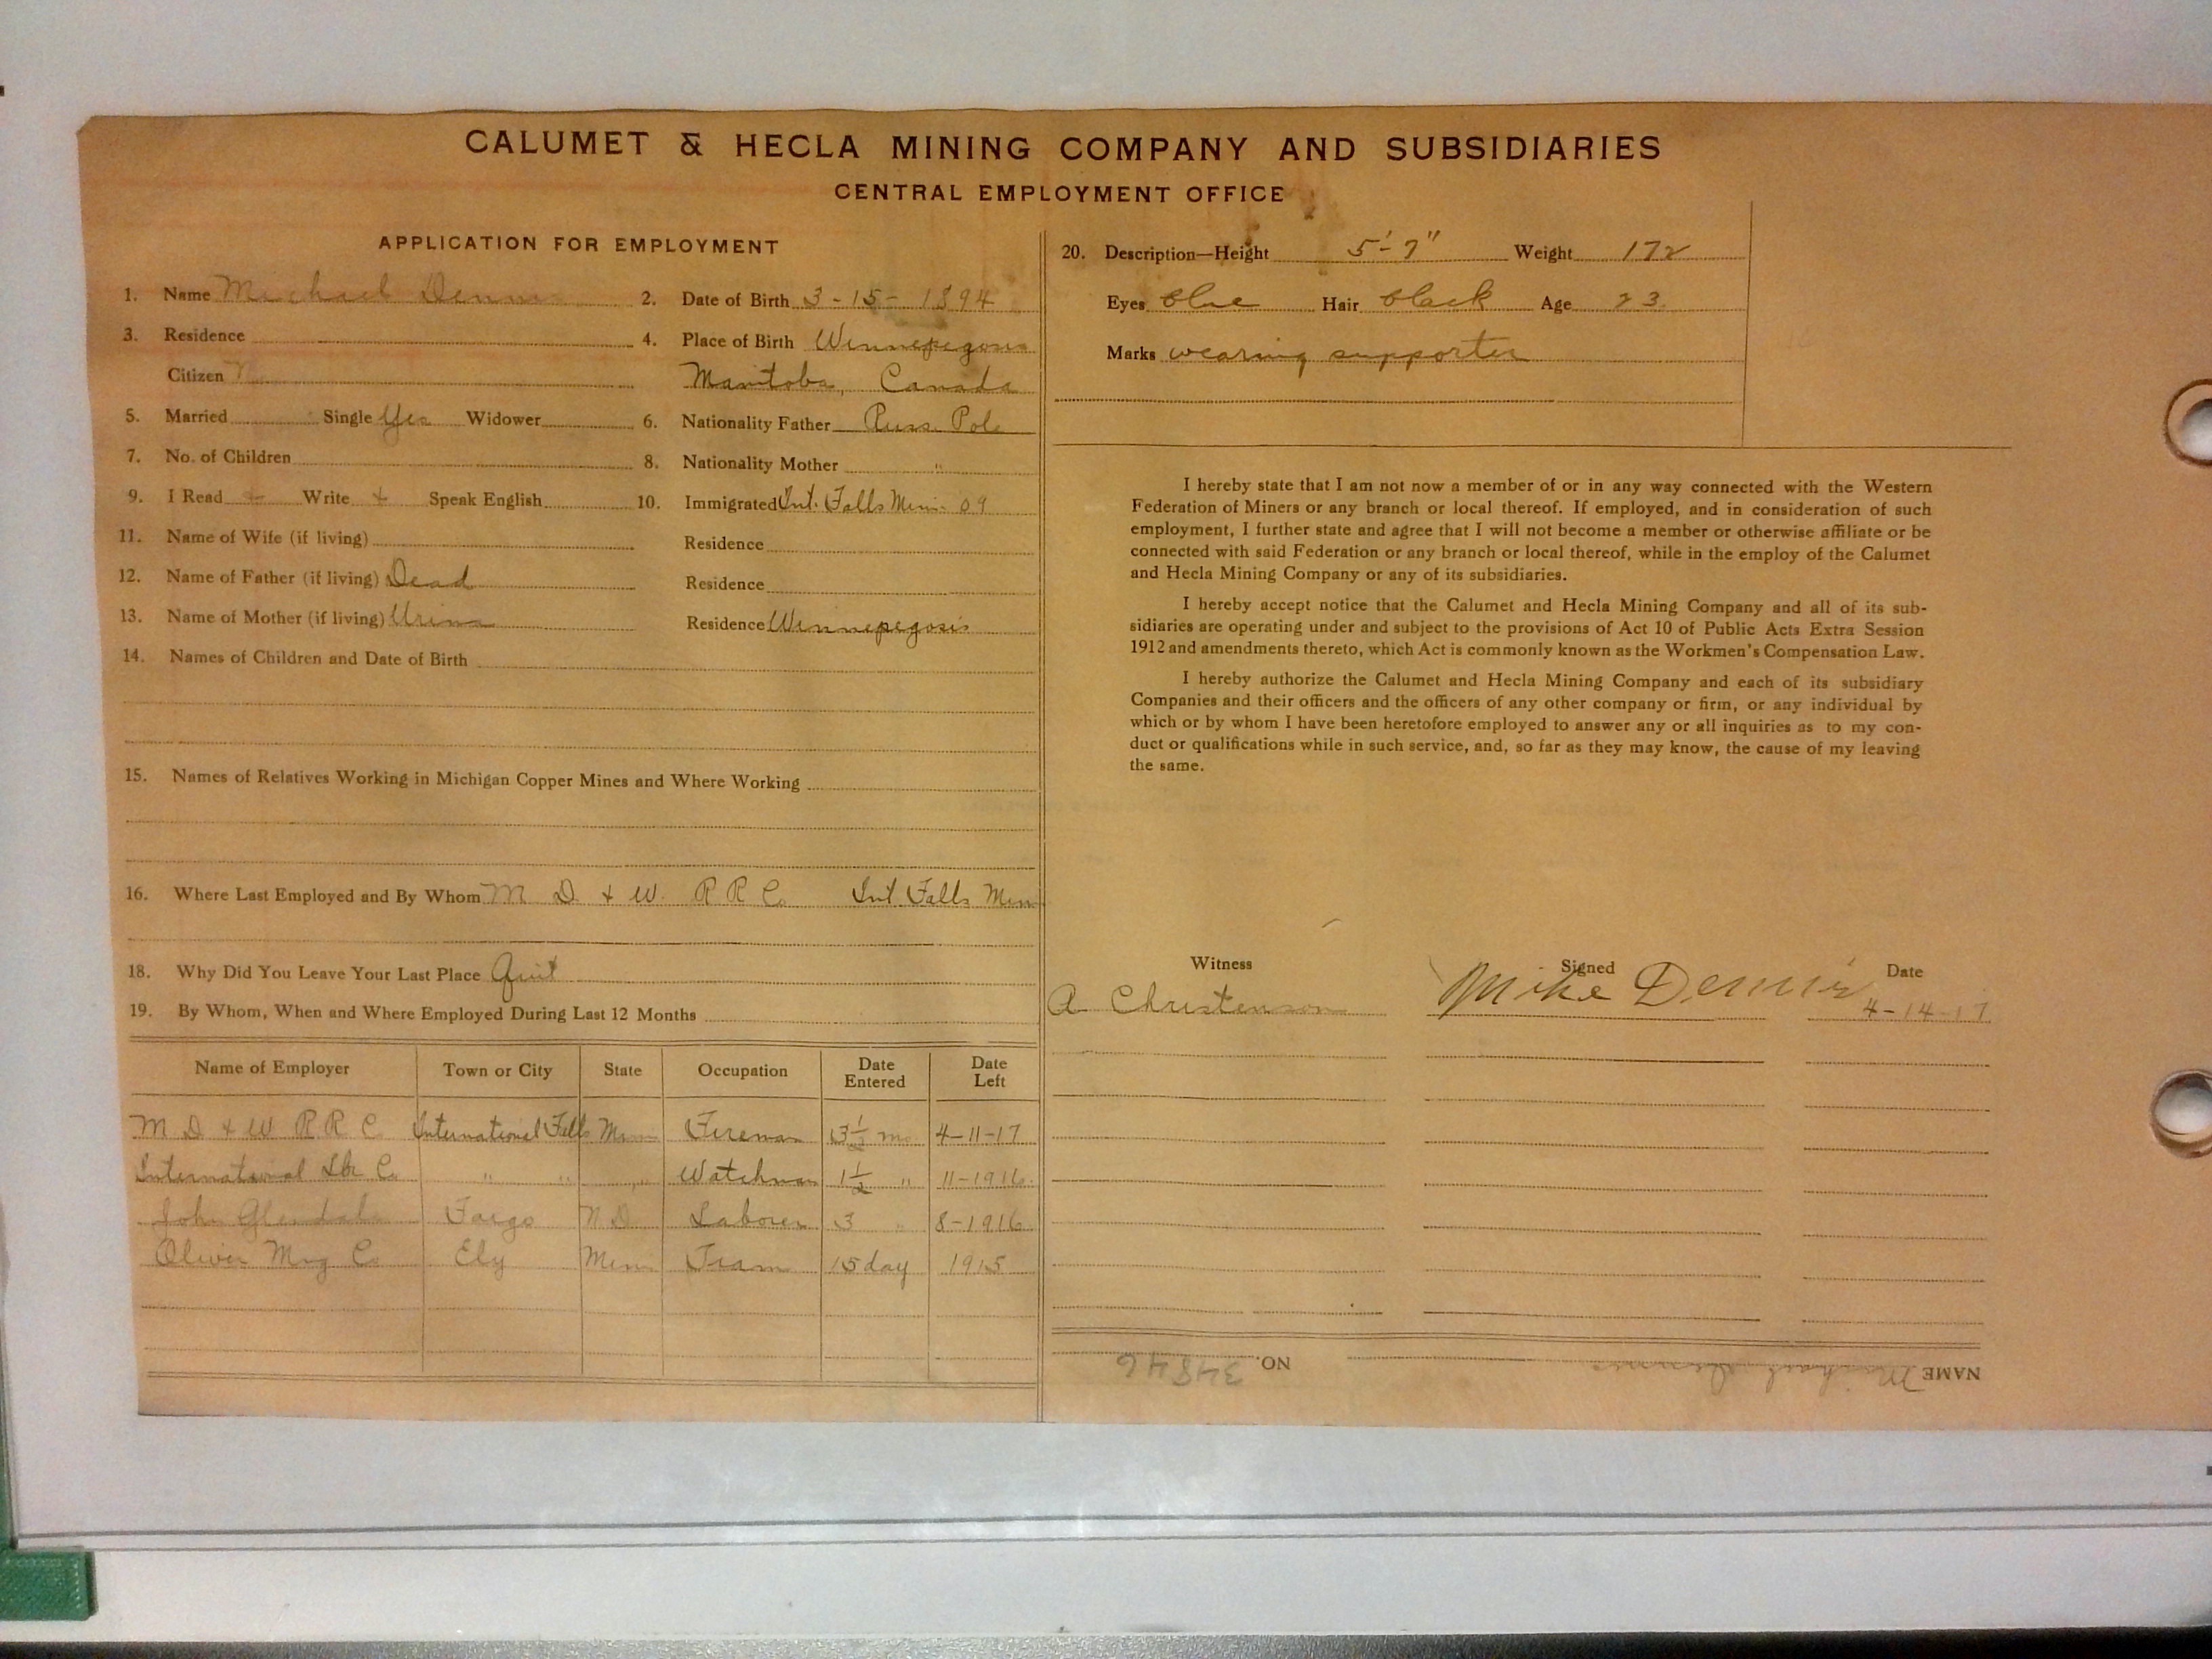 CALUMET & HECLA MINING COMPANY AND SUBSIDIARIES
CENTRAL EMPLOYMENT OFFICE
APPLICATION FOR EMPLOYMENT
1. Name Michael Dennis 2. Date of Birth 3-15-1894
3. Residence 4. Place of Birth Winnepegosis
Citizen Manitoba, Canada
5. Married Single Yes Widower 6. Nationality Father Russ. Pole
7. No. of Children 8. Nationality Mother "
9. I Read + Write + Speak English 10. Immigrated Int. Falls Minn. 09
11. Name of Wife (if living) Residence
12. Name of Father (if living) Dead Residence
13. Name of Mother (if living) Urina Residence Winnepegosis
14. Names of Children and Date of Birth
15. Names of Relatives Working in Michigan Copper Mines and Where Working
16. Where Last Employed and By Whom M D & W. R R Co Int. Falls Minn
18. Why Did You Leave Your Last Place Quit
19. By Whom, When and Where Employed During Last 12 Months
Name of Employer Town or City State Occupation Date Entered Date Left
M D & W R R C International Falls Minn Fireman 3 1/2 mo 4-11-17
International Lbr Co " " " Watchman 1 1/2 " 11-1916
John Glendale Fargo N D Laborer 3 " 8-1916
Oliver Mng Co Ely Minn Tram 15 day 1915
20. Description—Height 5'-7" Weight 172
Eyes blue Hair black Age 23
Marks wearing supporter
I hereby state that I am not now a member of or in any way connected with the Western
Federation of Miners or any branch or local thereof. If employed, and in consideration of such
employment, I further state and agree that I will not become a member or otherwise affiliate or be
connected with said Federation or any branch or local thereof, while in the employ of the Calumet
and Hecla Mining Company or any of its subsidiaries.
I hereby accept notice that the Calumet and Hecla Mining Company and all of its sub-
sidiaries are operating under and subject to the provisions of Act 10 of Public Acts Extra Session
1912 and amendments thereto, which Act is commonly known as the Workmen's Compensation Law.
I hereby authorize the Calumet and Hecla Mining Company and each of its subsidiary
Companies and their officers and the officers of any other company or firm, or any individual by
which or by whom I have been heretofore employed to answer any or all inquiries as to my con-
duct or qualifications while in such service, and, so far as they may know, the cause of my leaving
the same.
Witness Signed Date
A Christenson Mike Dennis 4-14-17
NAME Michael Dennis NO. 34846